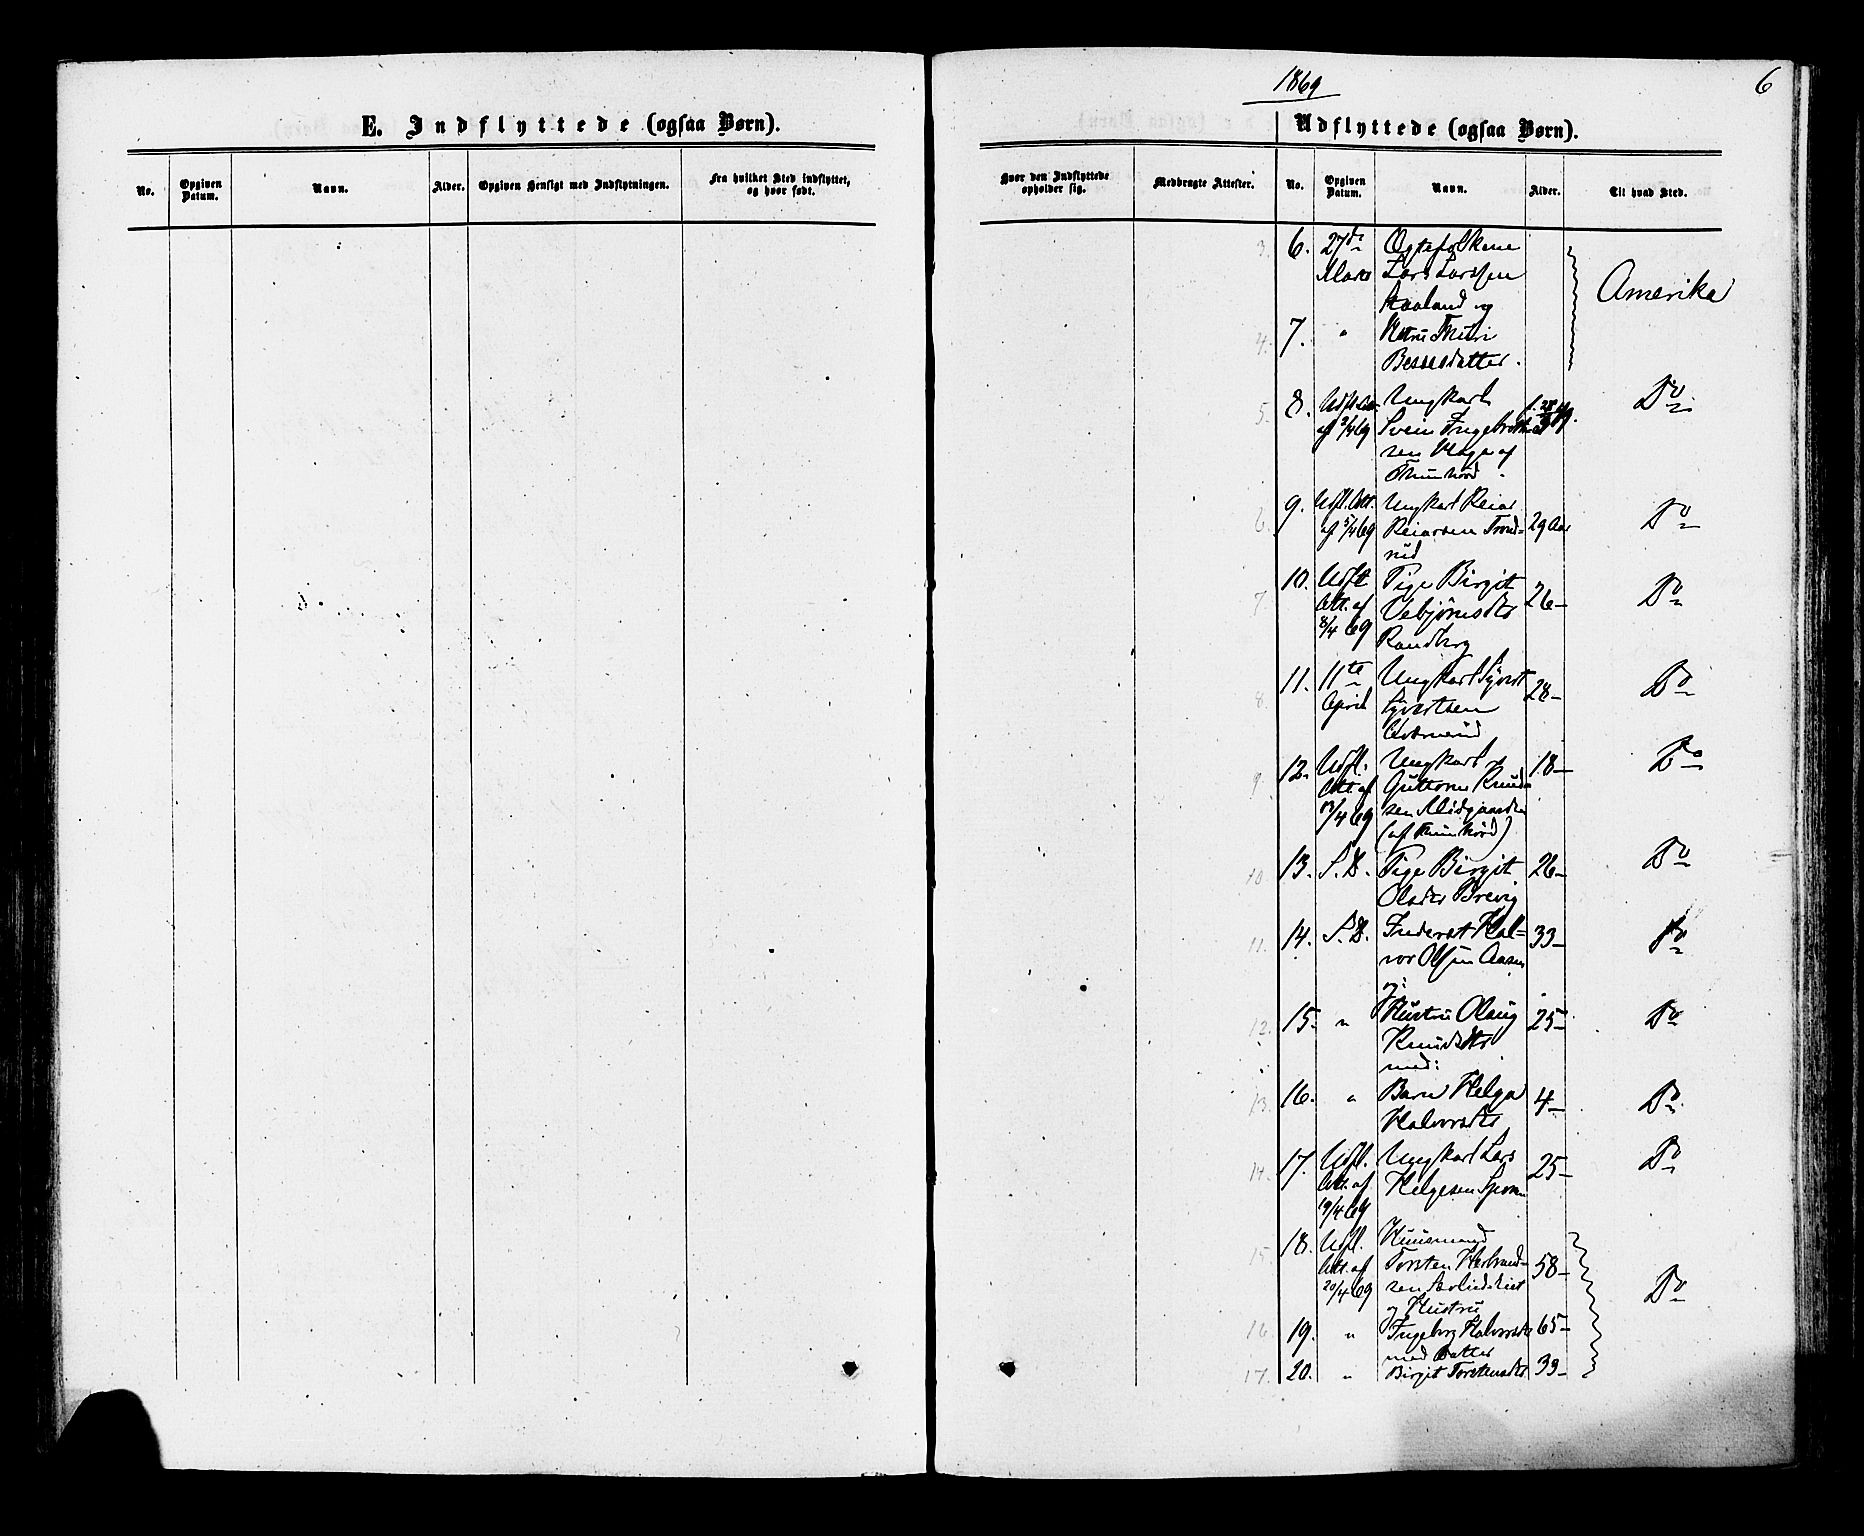 1869
6
E. Indflyttede (ogsaa Børn).
No.
Opgiven Datum.
Navn.
Alder.
Opgiven Hensigt med Indflytningen.
Fra hvilket Sted indflyttet, og hvor født.
Udflyttede (ogsaa Børn).
Hvor den Indflyttede opholder sig.
Medbragte Attester.
No.
Opgiven Datum.
Navn.
Alder.
Til hvad Sted.
3. 6. 27de Ægtefolkene
Marts Lars Larssen Amerika
Haaland og
4. 7. " Hustru
Bessesdatter.
5. 8. Ungkarl Do
af 3/4 69 Svein Ingebrigt-
sen af
9. Udfl. Att. Ungkarl Reiar Do
af 5/4 69 Reiarsen Trond- 29 Aar
rud
7. 10. Udfl. Pige Birgit
Att. af Vebjørnsdtr 26— Do
8/4 69 Randberg
8. 11. 11te Ungkarl Syvert 28— Do
April Syvertsen
9. 12. Udfl. Ungkarl 18— Do
Att. af Guttorm Knud-
13/4 69 sen Midgaarden
10. 13. S. D. Pige Birgit 26— Do
Olsdtr Brevig
11. 14. S. D. Inderst Hal- 33— Do
vor Olsen Aasen
og
12. 15. " Hustru Olaug 25— Do
Knudsdtr
med:
13. 16. " Barn Helga 4— Do
Halvorsdtr
14. 17. Udfl. Ungkarl Lars 25— Do
Att. af Helgesen
19/4 69
15. 18. Udfl. Huusmand
Att. af Torsten Herbrand- 58—
20/4 69 sen Do
og Hustru
16. 19. " Ingeborg Halvorsdtr 65—
med Datter
17. 20. " Birgit Torstensdtr 33—